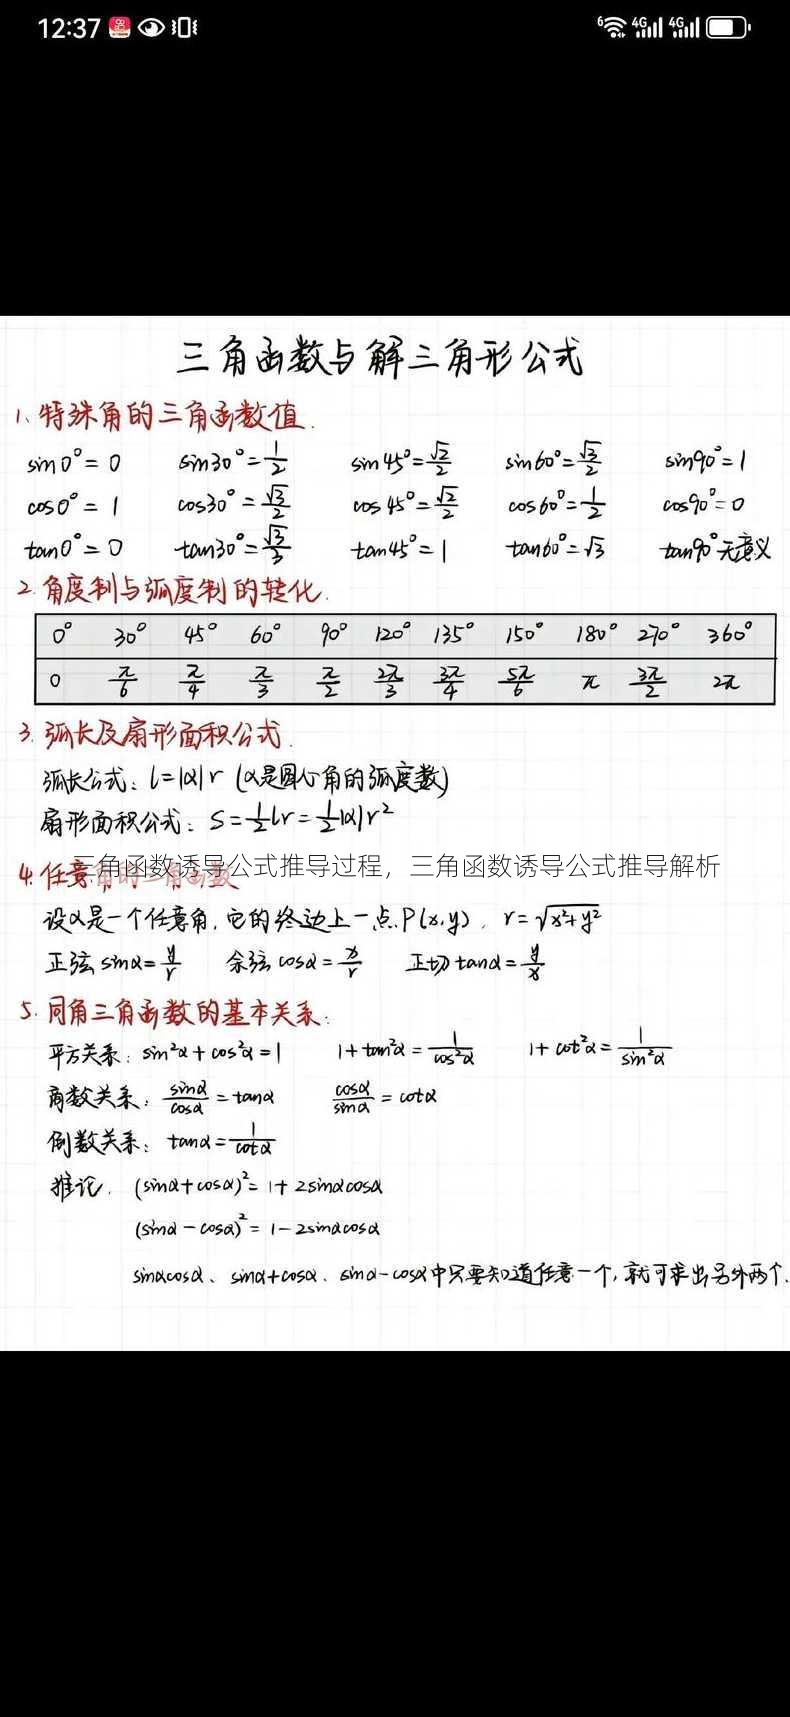 12:37
6 4G 4G
三角函数与解三角形公式
1、特殊角的三角函数值.
sin0°=0 sin30°=1/2 sin45°=√2/2 sin60°=√3/2 sin90°=1
cos0°=1 cos30°=√3/2 cos45°=√2/2 cos60°=1/2 cos90°=0
tan0°=0 tan30°=√3/3 tan45°=1 tan60°=√3 tan90°无意义
2.角度制与弧度制的转化.
0° 30° 45° 60° 90° 120° 135° 150° 180° 270° 360°
0 π/6 π/4 π/3 π/2 2π/3 3π/4 5π/6 π 3π/2 2π
3.弧长及扇形面积公式.
弧长公式：l=|α|r (α是圆心角的弧度数)
扇形面积公式：S=1/2lr=1/2|α|r²
三角函数诱导公式推导过程，三角函数诱导公式推导解析
4.任意角的三角函数
设α是一个任意角，它的终边上一点P(x,y)，r=√x²+y²
正弦sinα=y/r 余弦cosα=x/r 正切tanα=y/x
5.同角三角函数的基本关系：
平方关系：sin²α+cos²α=1 1+tan²α=1/cos²α 1+cot²α=1/sin²α
商数关系：sinα/cosα=tanα cosα/sinα=cotα
倒数关系：tanα=1/cotα
推论. (sinα+cosα)²=1+2sinαcosα
(sinα-cosα)²=1-2sinαcosα
sinαcosα、sinα+cosα、sinα-cosα中只要知道任意一个，就可求出另外两个.